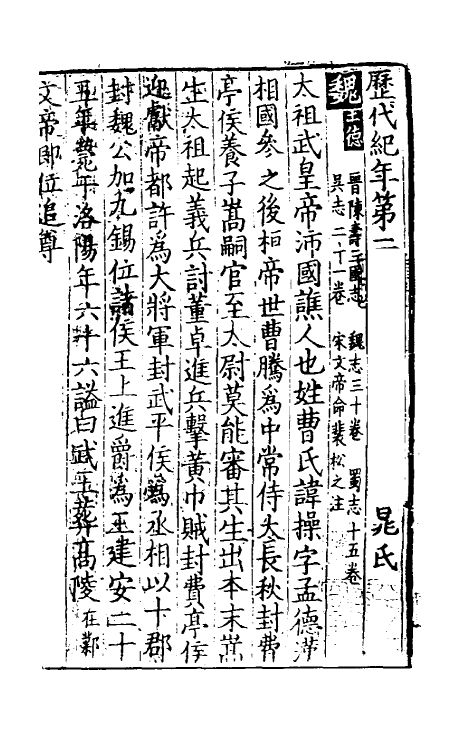 歷代紀年第二
晁氏
魏 土德 晉陳壽三國志 魏志三十卷 蜀志十五卷
吳志二十一卷 宋文帝命裴松之注
太祖武皇帝沛國譙人也姓曹氏諱操字孟德漢
相國參之後桓帝世曹騰爲中常侍大長秋封費
亭侯養子嵩嗣官至太尉莫能審其生出本末嵩
生太祖起義兵討董卓進兵擊黃巾賊封費亭侯
迎獻帝都許爲大將軍封武平侯爲丞相以十郡
封魏公加九錫位諸侯王上進爵爲王建安二十
五年薨于洛陽年六十六謚曰武王葬高陵在鄴
文帝即位追尊